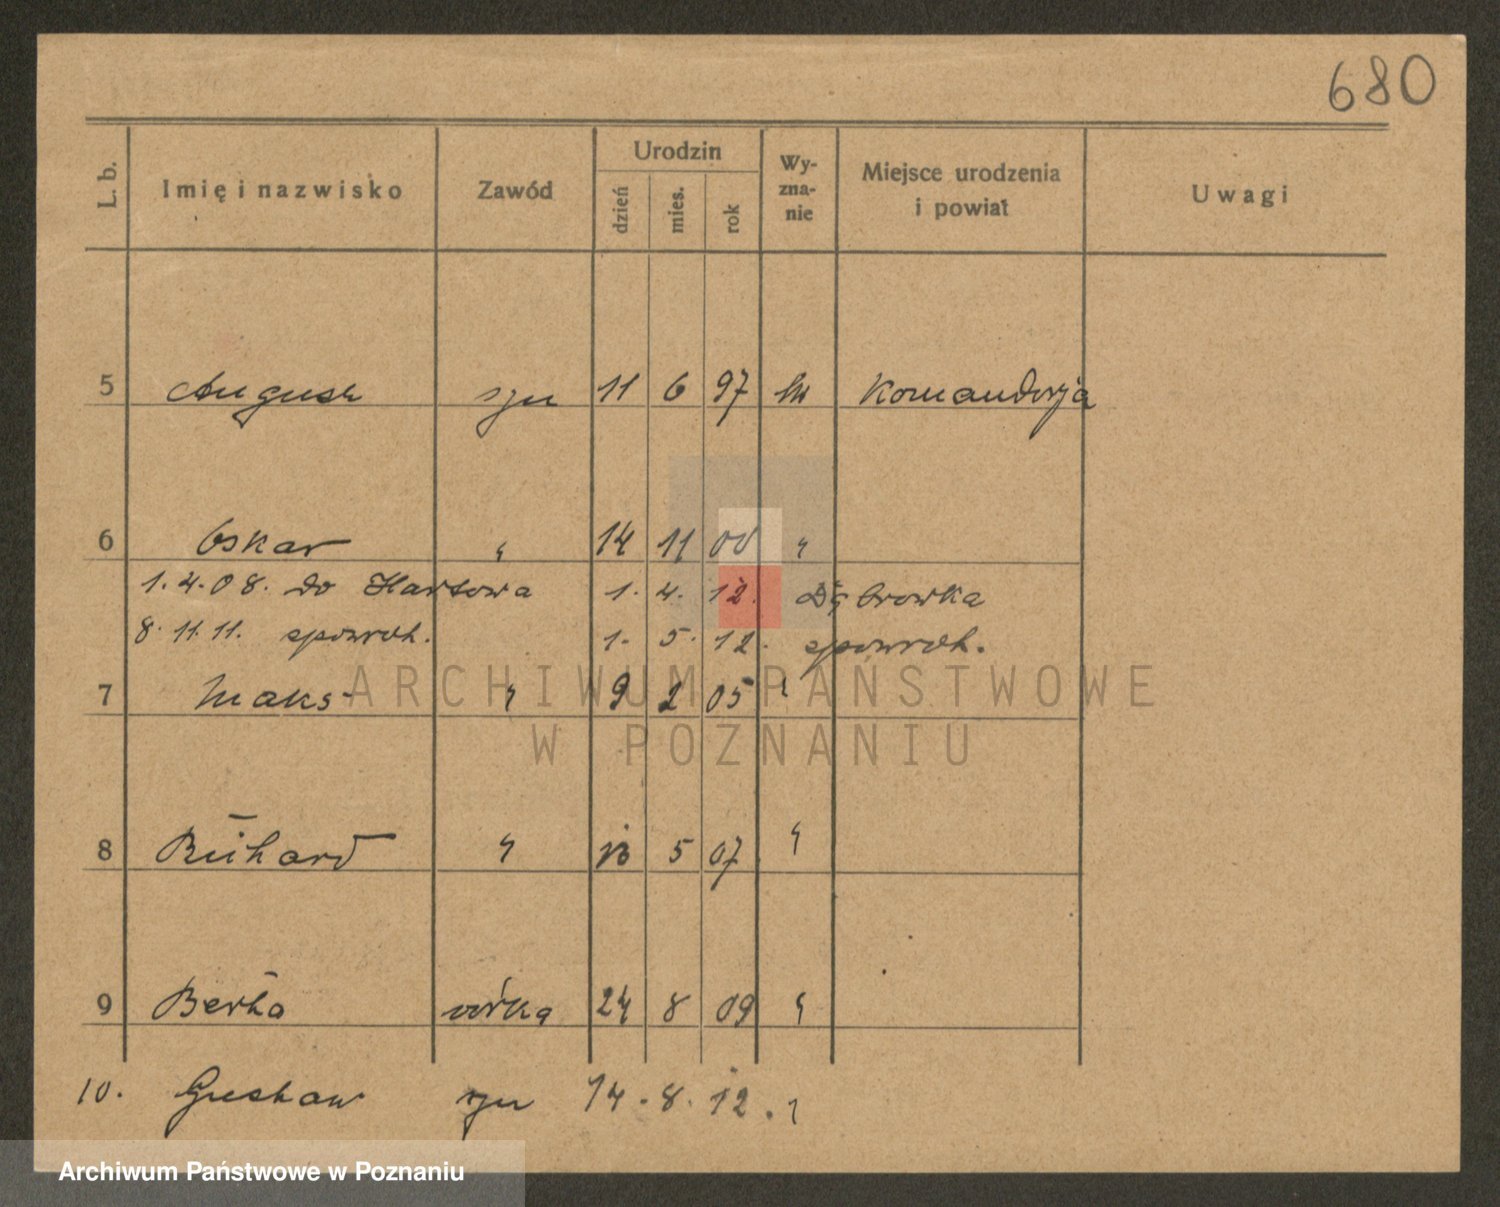 680
L. b. Imię i nazwisko Zawód Urodzin dzień mies. rok Wy-zna-nie Miejsce urodzenia i powiat Uwagi
5 August syn 11 6 97 Komandorja
6 Oskar " 14 11 00 "
1.4.08. do Hartowa 1. 4. 12. Dąbrowka
8.11.11. spowrot. 1. 5. 12. spowrot.
7 Maks " 9 2 05 "
8 Richard " 5 07 "
9 Berta córka 24 8 09 "
10. Gustaw syn 14. 8. 12. "
ARCHIWUM PAŃSTWOWE
W POZNANIU
Archiwum Państwowe w Poznaniu